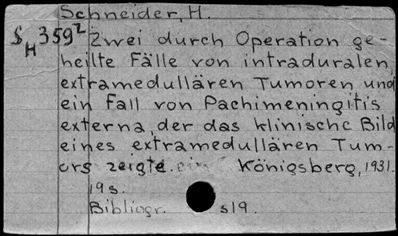 Schneider, H.
S H 359² Zwei durch Operation ge-
heilte Fälle von intraduralen,
extramedullären Tumoren und
ein Fall von Pachimeningitis
externa, der das klinische Bild
eines extramedullären Tum-
ors zeigte. Königsberg, 1931.
19 s.
Bibliogr. s 19.